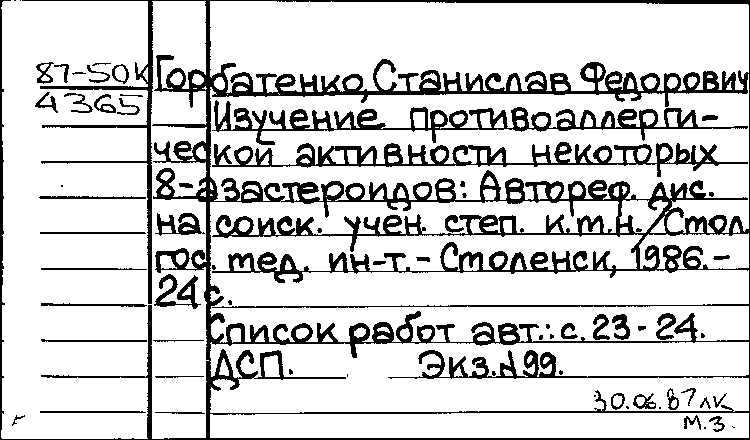 87-50К
4365
Горбатенко, Станислав Федорович
Изучение противоаллерги-
ческой активности некоторых
8-азастероидов: Автореф. дис.
на соиск. учен. степ. к.м.н./Смол.
гос. мед. ин-т. - Смоленск, 1986. -
24 с.
Список работ авт.: с. 23-24.
ДСП. Экз.№99.
30.06.87 лк
М.З.